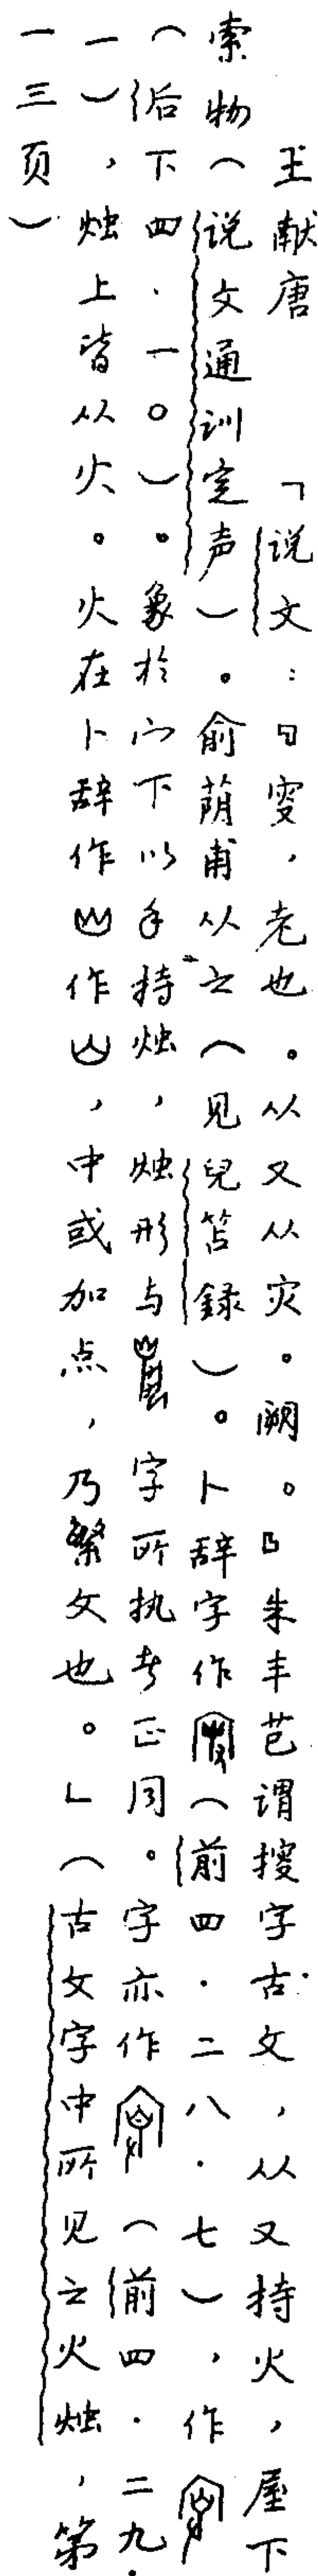 王献唐 「说文：『叜，老也。从又从灾。阙。』朱丰芑谓搜字古文，从又持火，屋下
索物（说文通训定声）。俞荫甫从之（见兒笘録）。卜辞字作（前四·二八·七），作
（后下四·一〇）。象於宀下以手持烛，烛形与字所执者正同。字亦作（前四·二九·
一），烛上皆从火。火在卜辞作作，中或加点，乃繁文也。」（古文字中所见之火烛，第
一三页）